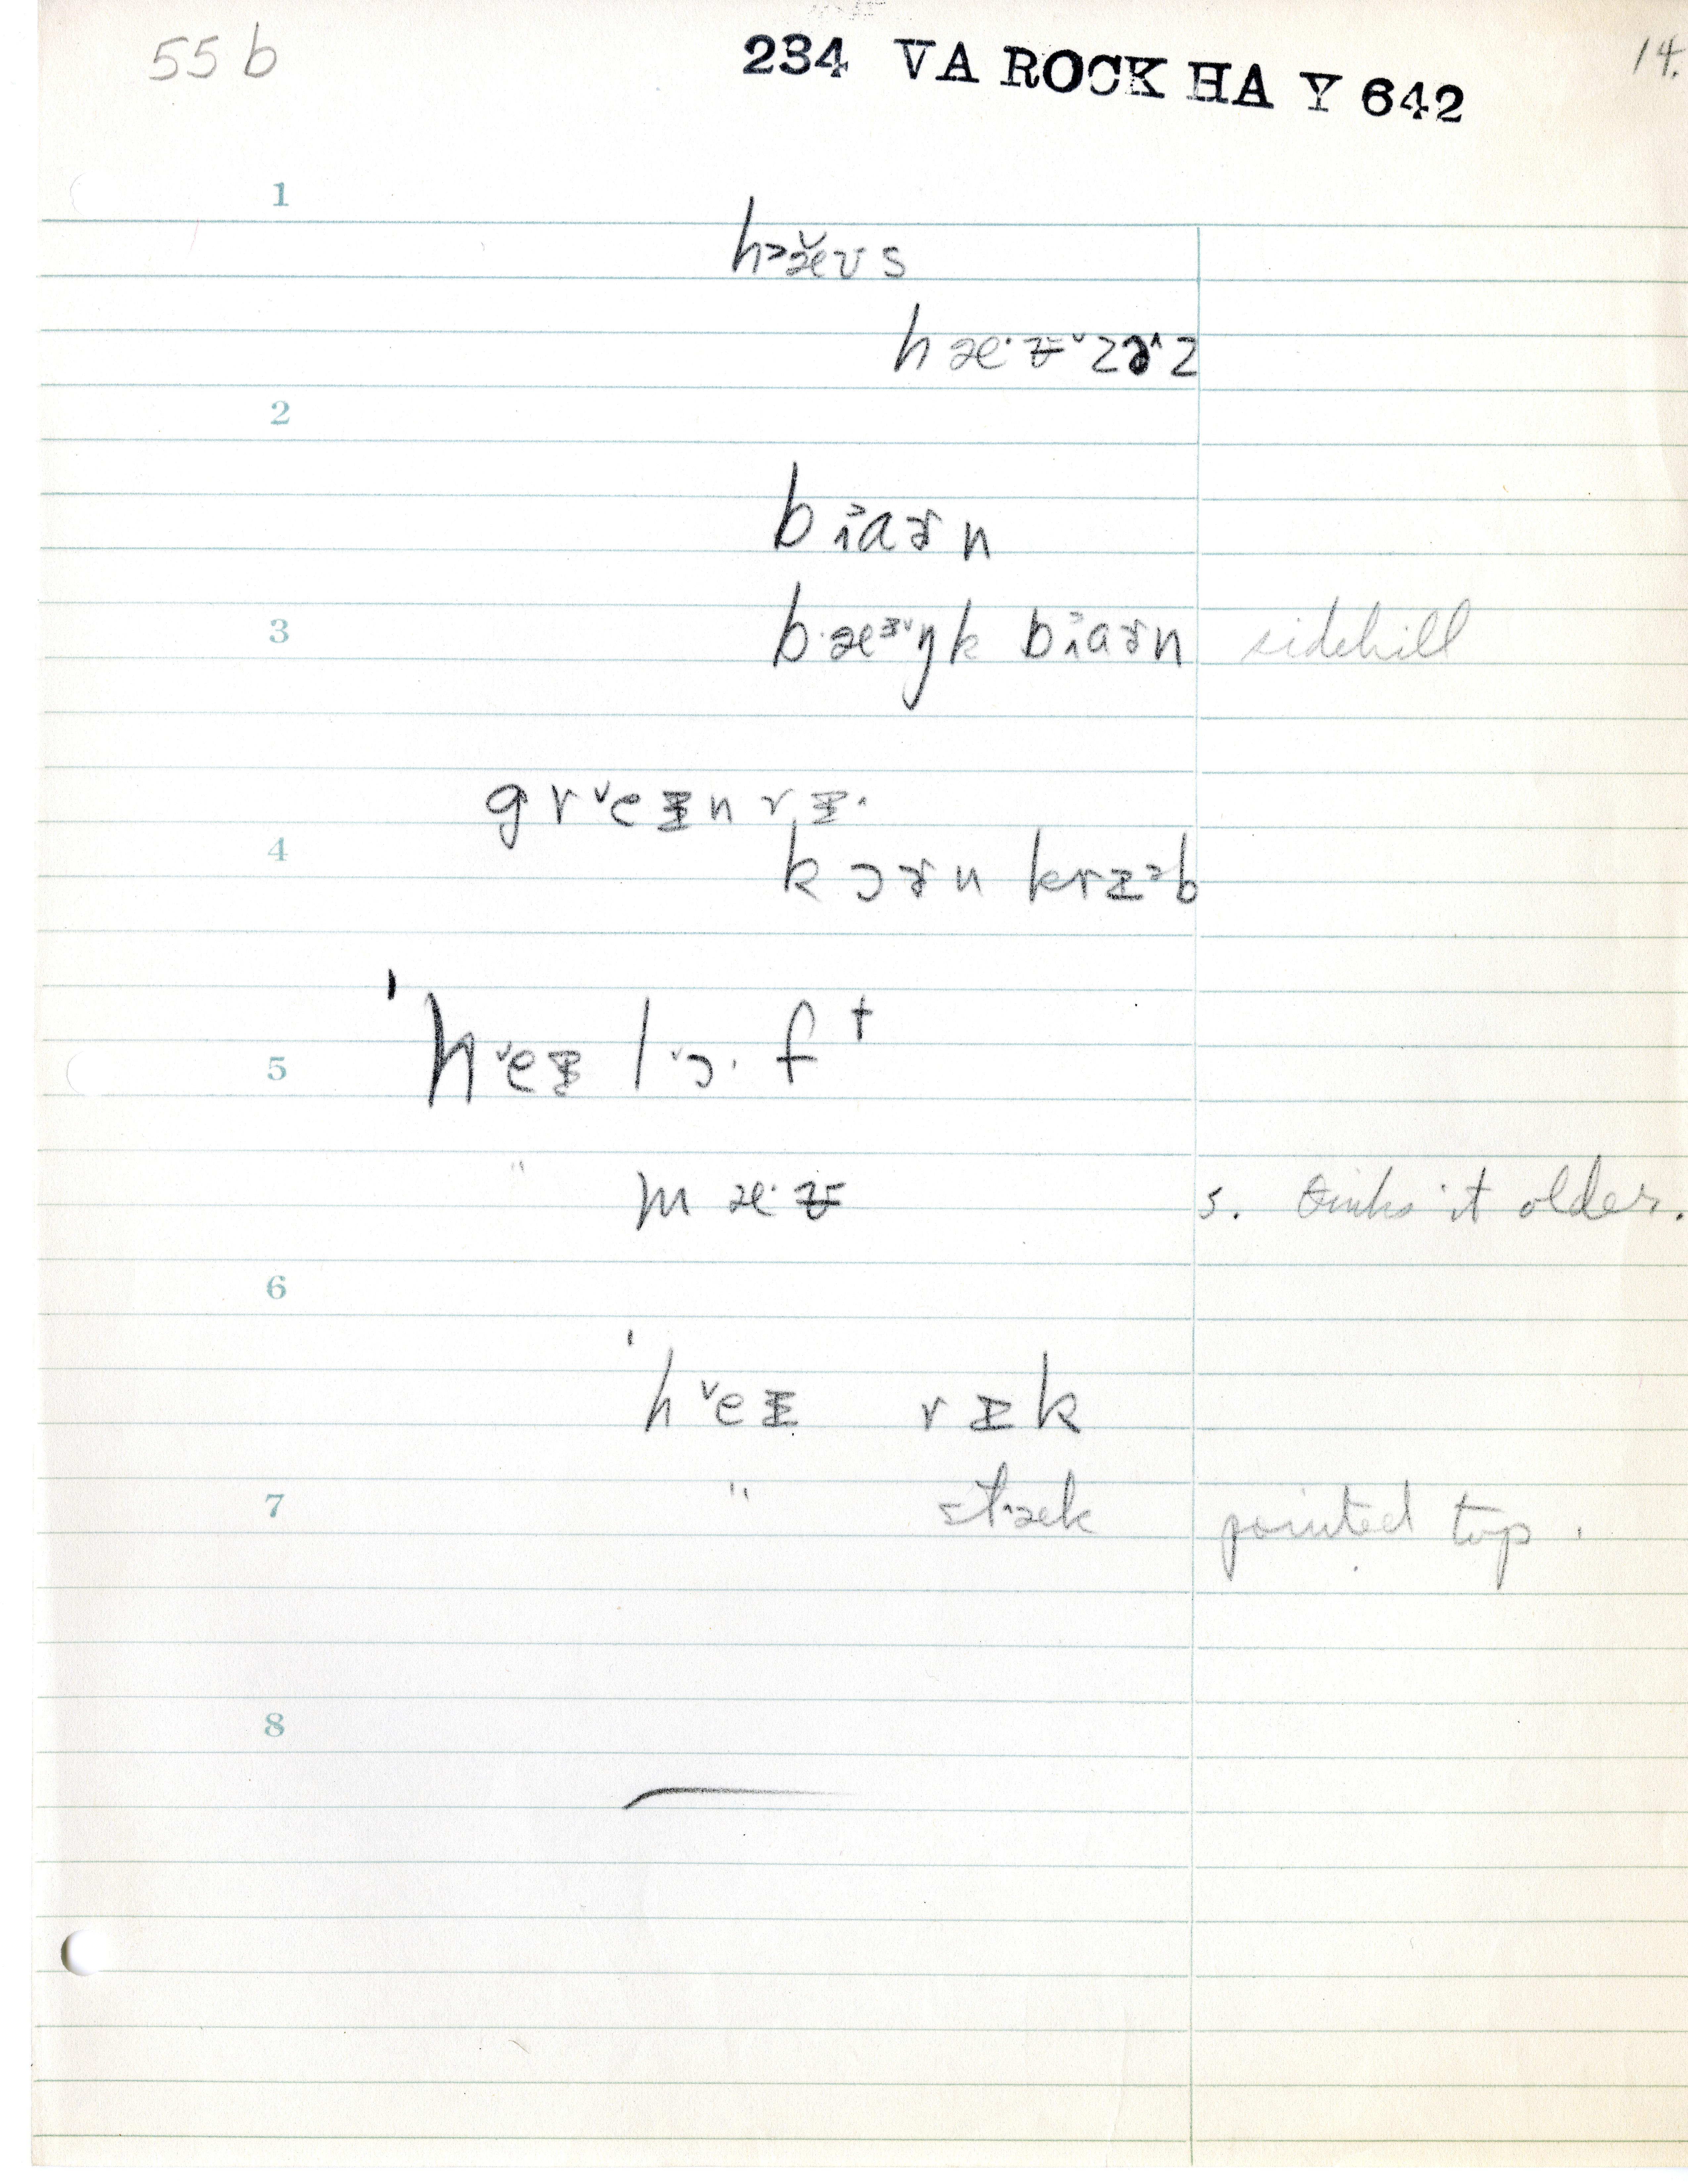 55 b 234 VA ROCK HA Y 642 14.
1
h˃æ̆ʊs
hæ·ʊ̵ˇzə^z
2
bɪ˃aɚn
3 b·æᵌˇŋk bɪ˃aɚn sidehill
grˇeɪ̵n rɪ̵·
4 kɔɚn krɪ˃b
ˈhˇeɪ̵ lˇɔ·f t
5
" mæ·ʊ̵ s. thinks it older.
6
ˈhˇeɪ̵ rɪ̵k
7 " st˄æk pointed top.
8